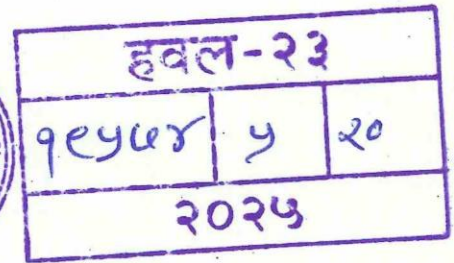 हवल-२३
१९५७४ ५ २०
२०२५